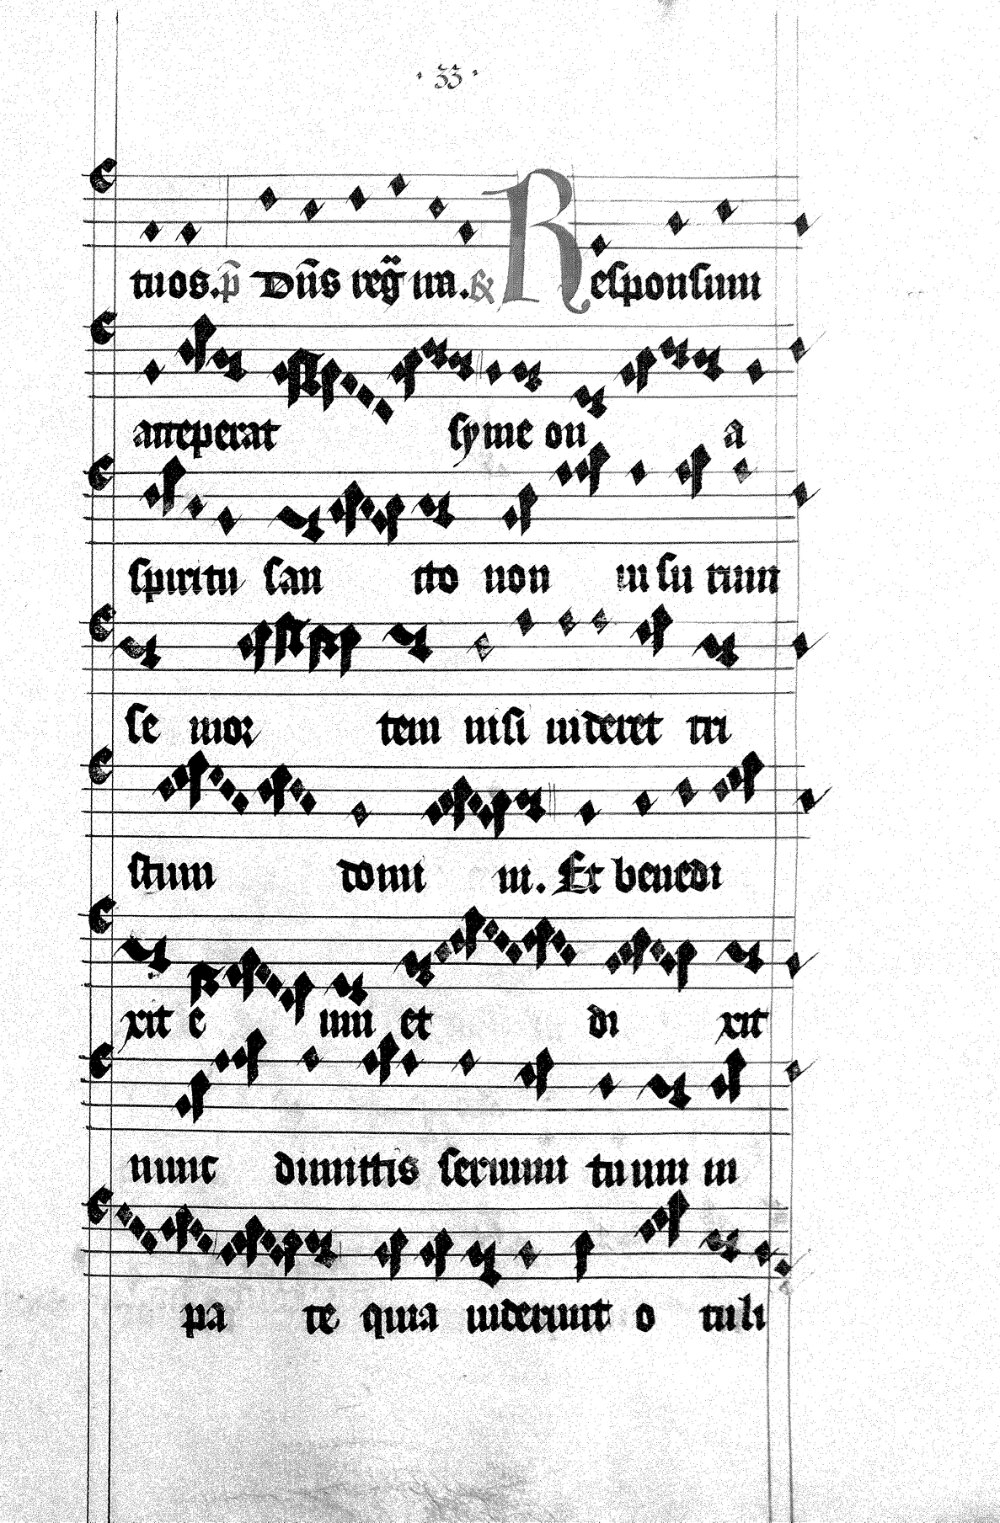 · 33 ·
tuos. p̄ Dn̄s reg̈ ur̄a. & Responsum
acceperat symeon a
spiritu sancto non uisurum
se mortem nisi uideret cri
stum domini. Et benedi
xit eum et dixit
nunc dimittis seruum tuum in
pace quia uiderunt oculi